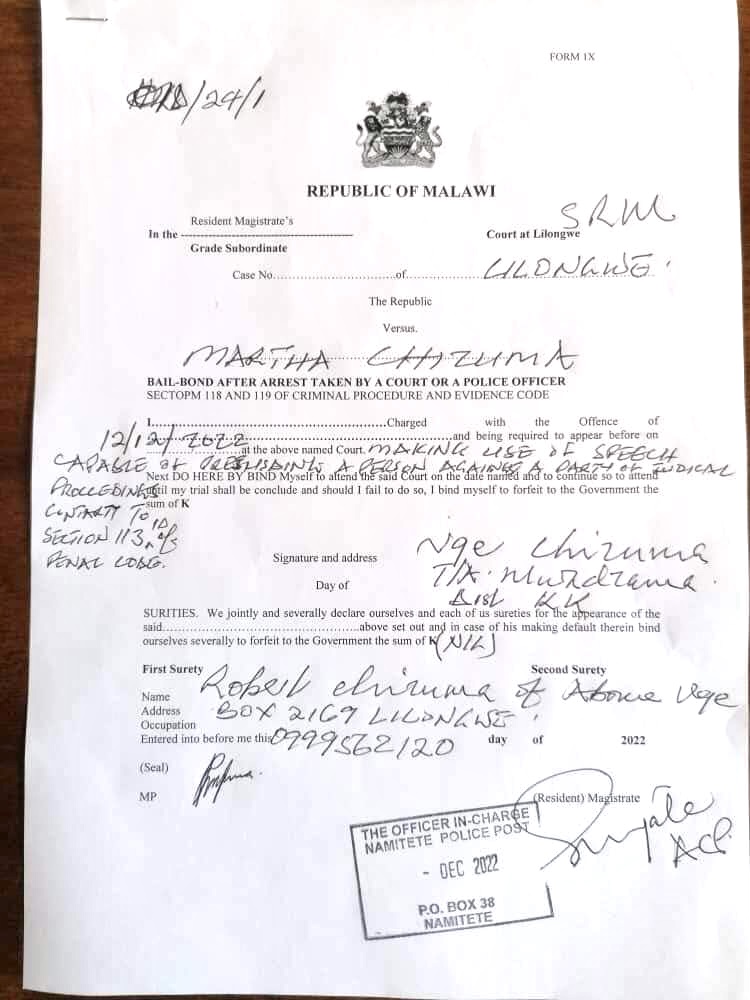 FORM 1X
/24/1
REPUBLIC OF MALAWI
SRM
Resident Magistrate's
In the ---------------------------------------- Court at Lilongwe
Grade Subordinate
Case No..............................of................... LILONGWE.
The Republic
Versus.
MARTHA CHIZUMA
BAIL-BOND AFTER ARREST TAKEN BY A COURT OR A POLICE OFFICER
SECTOPM 118 AND 119 OF CRIMINAL PROCEDURE AND EVIDENCE CODE
I..........................................................Charged with the Offence of
12/12/2022 ..........................................................and being required to appear before on
..........................at the above named Court. MAKING USE OF SPEECH
CAPABLE OF A PERSON AGAINST A PARTY OF JUDICAL
Next DO HERE BY BIND Myself to attend the said Court on the date named and to continue so to attend
PROCCEDINGS until my trial shall be conclude and should I fail to do so, I bind myself to forfeit to the Government the
sum of K
CONTARY TO
SECTION 113
PENAL CODE.
Signature and address Vge Chizuma
T/A.
Day of Dist KK
SURITIES. We jointly and severally declare ourselves and each of us sureties for the appearance of the
said..........................................................above set out and in case of his making default therein bind
ourselves severally to forfeit to the Government the sum of K (NIL)
First Surety Second Surety
Name Robert Chizuma of Above Vge
Address BOX 2169 LILONGWE
Occupation
Entered into before me this 0999562120 day of 2022
(Seal)
MP
(Resident) Magistrate
ACP
THE OFFICER IN-CHARGE
NAMITETE POLICE POST
- DEC 2022
P.O. BOX 38
NAMITETE